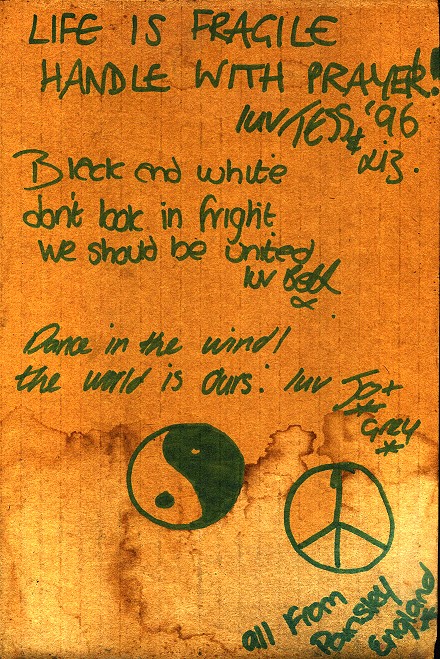 LIFE IS FRAGILE
HANDLE WITH PRAYER!
luv TESS '96
& Liz.
Black and white
don't look in fright
we should be united
luv Beth
x.
Dance in the wind!
the world is ours! luv Jo +
Grey
all From
England